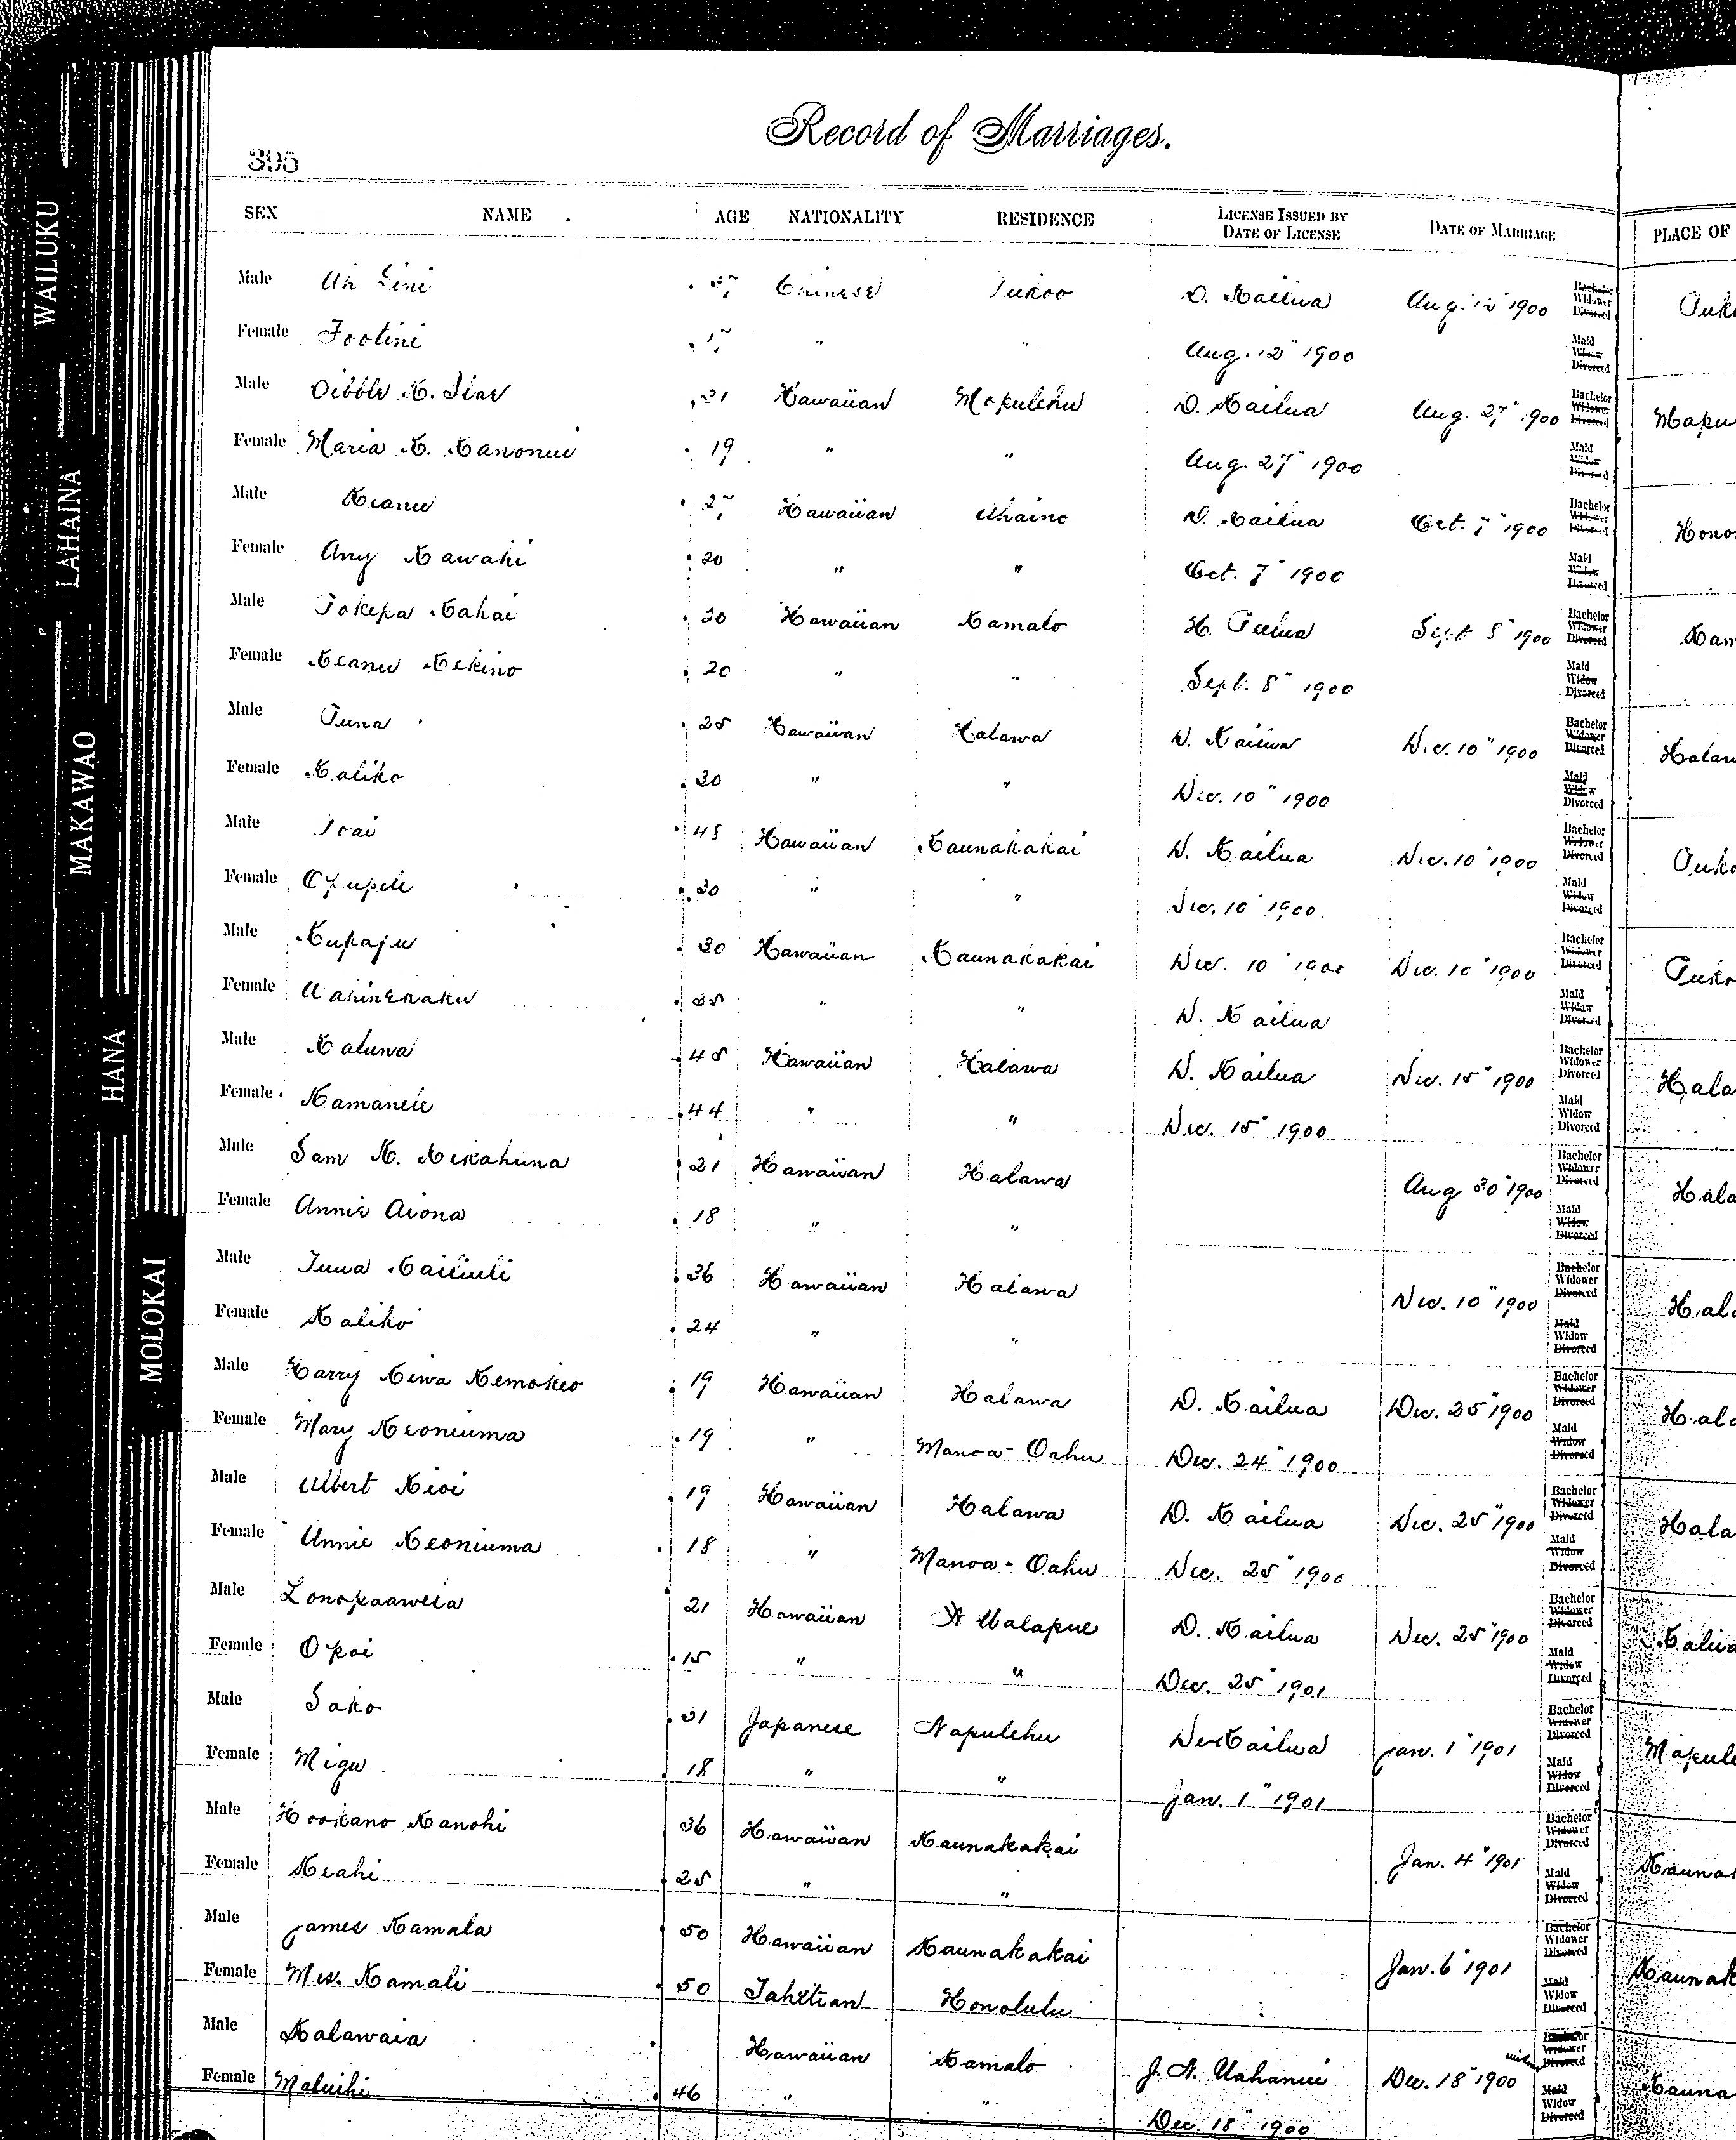 Record of Marriages.
395
SEX NAME AGE NATIONALITY RESIDENCE LICENSE ISSUED BY DATE OF LICENSE DATE OF MARRIAGE PLACE OF
Male Ah Chinese D. Kailua Aug. 12" 1900 Bachelor Widower Divorced
Female Footini " " Aug. 12" 1900 Maid Widow Divorced
Male Dibble K. 21 Hawaiian Mapulehu D. Kailua Aug. 27" 1900 Bachelor Widower Divorced Mapu
Female Maria K. Kanonui 19 " " Aug. 27" 1900 Maid Widow Divorced
Male Keanu Hawaiian D. Kailua Oct. 7" 1900 Bachelor Widower Divorced Hono
Female Any Kawahi 20 " " Oct. 7" 1900 Maid Widow Divorced
Male Iokepa Kahai 20 Hawaiian Kamalo H. Sept 8" 1900 Bachelor Widower Divorced Kam
Female Keanu Kekino 20 " " Sept. 8" 1900 Maid Widow Divorced
Male Puna 25 Hawaiian Halawa D. Kailua Dec. 10" 1900 Bachelor Widower Divorced Halaw
Female Kaliko 30 " " Dec. 10" 1900 Maid Widow Divorced
Male 45 Hawaiian Kaunakakai D. Kailua Dec. 10" 1900 Bachelor Widower Divorced Puko
Female 30 " " Dec. 10" 1900 Maid Widow Divorced
Male Kupapu 30 Hawaiian Kaunakakai Dec. 10" 1900 Dec. 10" 1900 Bachelor Widower Divorced Puko
Female 35 " " D. Kailua Maid Widow Divorced
Male Kaluna 45 Hawaiian Halawa D. Kailua Dec. 15" 1900 Bachelor Widower Divorced Hala
Female Kamanele 44 " " Dec. 15" 1900 Maid Widow Divorced
Male Sam K. Kekahuna 21 Hawaiian Halawa Aug 30" 1900 Bachelor Widower Divorced Hala
Female Annie Aiona 18 " " Maid Widow Divorced
Male 36 Hawaiian Halawa Dec. 10" 1900 Bachelor Widower Divorced Hala
Female Kaliko 24 " " Maid Widow Divorced
Male Harry Kiwa Kemokeo 19 Hawaiian Halawa D. Kailua Dec. 25" 1900 Bachelor Widower Divorced Hala
Female Mary Keoniuma 19 " Manoa - Oahu Dec. 24" 1900 Maid Widow Divorced
Male Albert Kioi 19 Hawaiian Halawa D. Kailua Dec. 25" 1900 Bachelor Widower Divorced Hala
Female Annie Keoniuma 18 " Manoa - Oahu Dec. 25" 1900 Maid Widow Divorced
Male Lonopaawela 21 Hawaiian Ualapue D. Kailua Dec. 25" 1900 Bachelor Widower Divorced
Female Opai 15 " " Dec. 25" 1901 Maid Widow Divorced
Male Sako 31 Japanese Napulehu D. Kailua Jan. 1" 1901 Bachelor Widower Divorced Mapule
Female Migu 18 " " Jan. 1" 1901 Maid Widow Divorced
Male Hookano Kanohi 36 Hawaiian Kaunakakai Jan. 4" 1901 Bachelor Widower Divorced Kaunak
Female Keahi 25 " " Maid Widow Divorced
Male James Kamala 50 Hawaiian Kaunakakai Jan. 6" 1901 Bachelor Widower Divorced Kaunak
Female Mrs. Kamali 50 Tahitian Honolulu Maid Widow Divorced
Male Kalawaia Hawaiian Kamalo J. N. Uahanui Dec. 18" 1900 Bachelor Widower Divorced Kauna
Female Maluihi 46 " " Dec. 18" 1900 Maid Widow Divorced
WAILUKU
LAHAINA
MAKAWAO
HANA
MOLOKAI